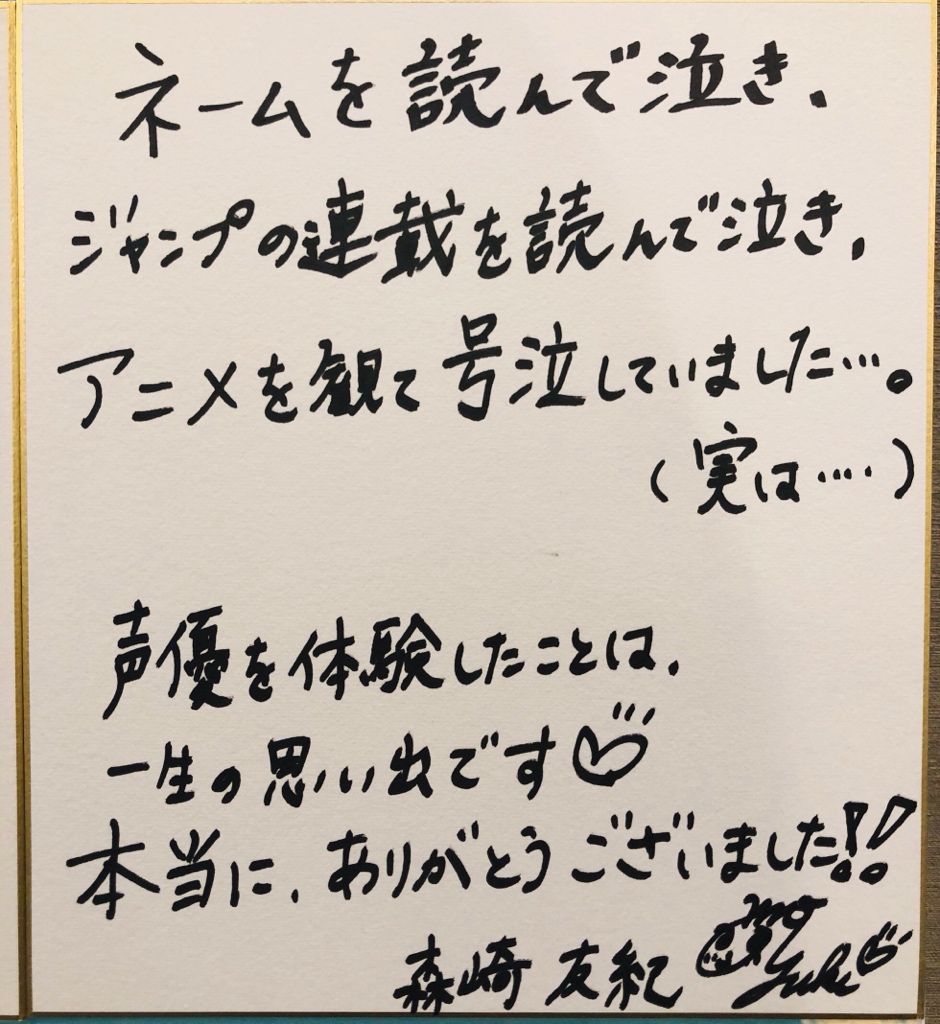 ネームを読んで泣き、
ジャンプの連載を読んで泣き、
アニメを観て号泣していました…。
(実は‥‥)
声優を体験したことは、
一生の思い出です♡
本当に、ありがとうございました!!
森崎友紀
Yuki